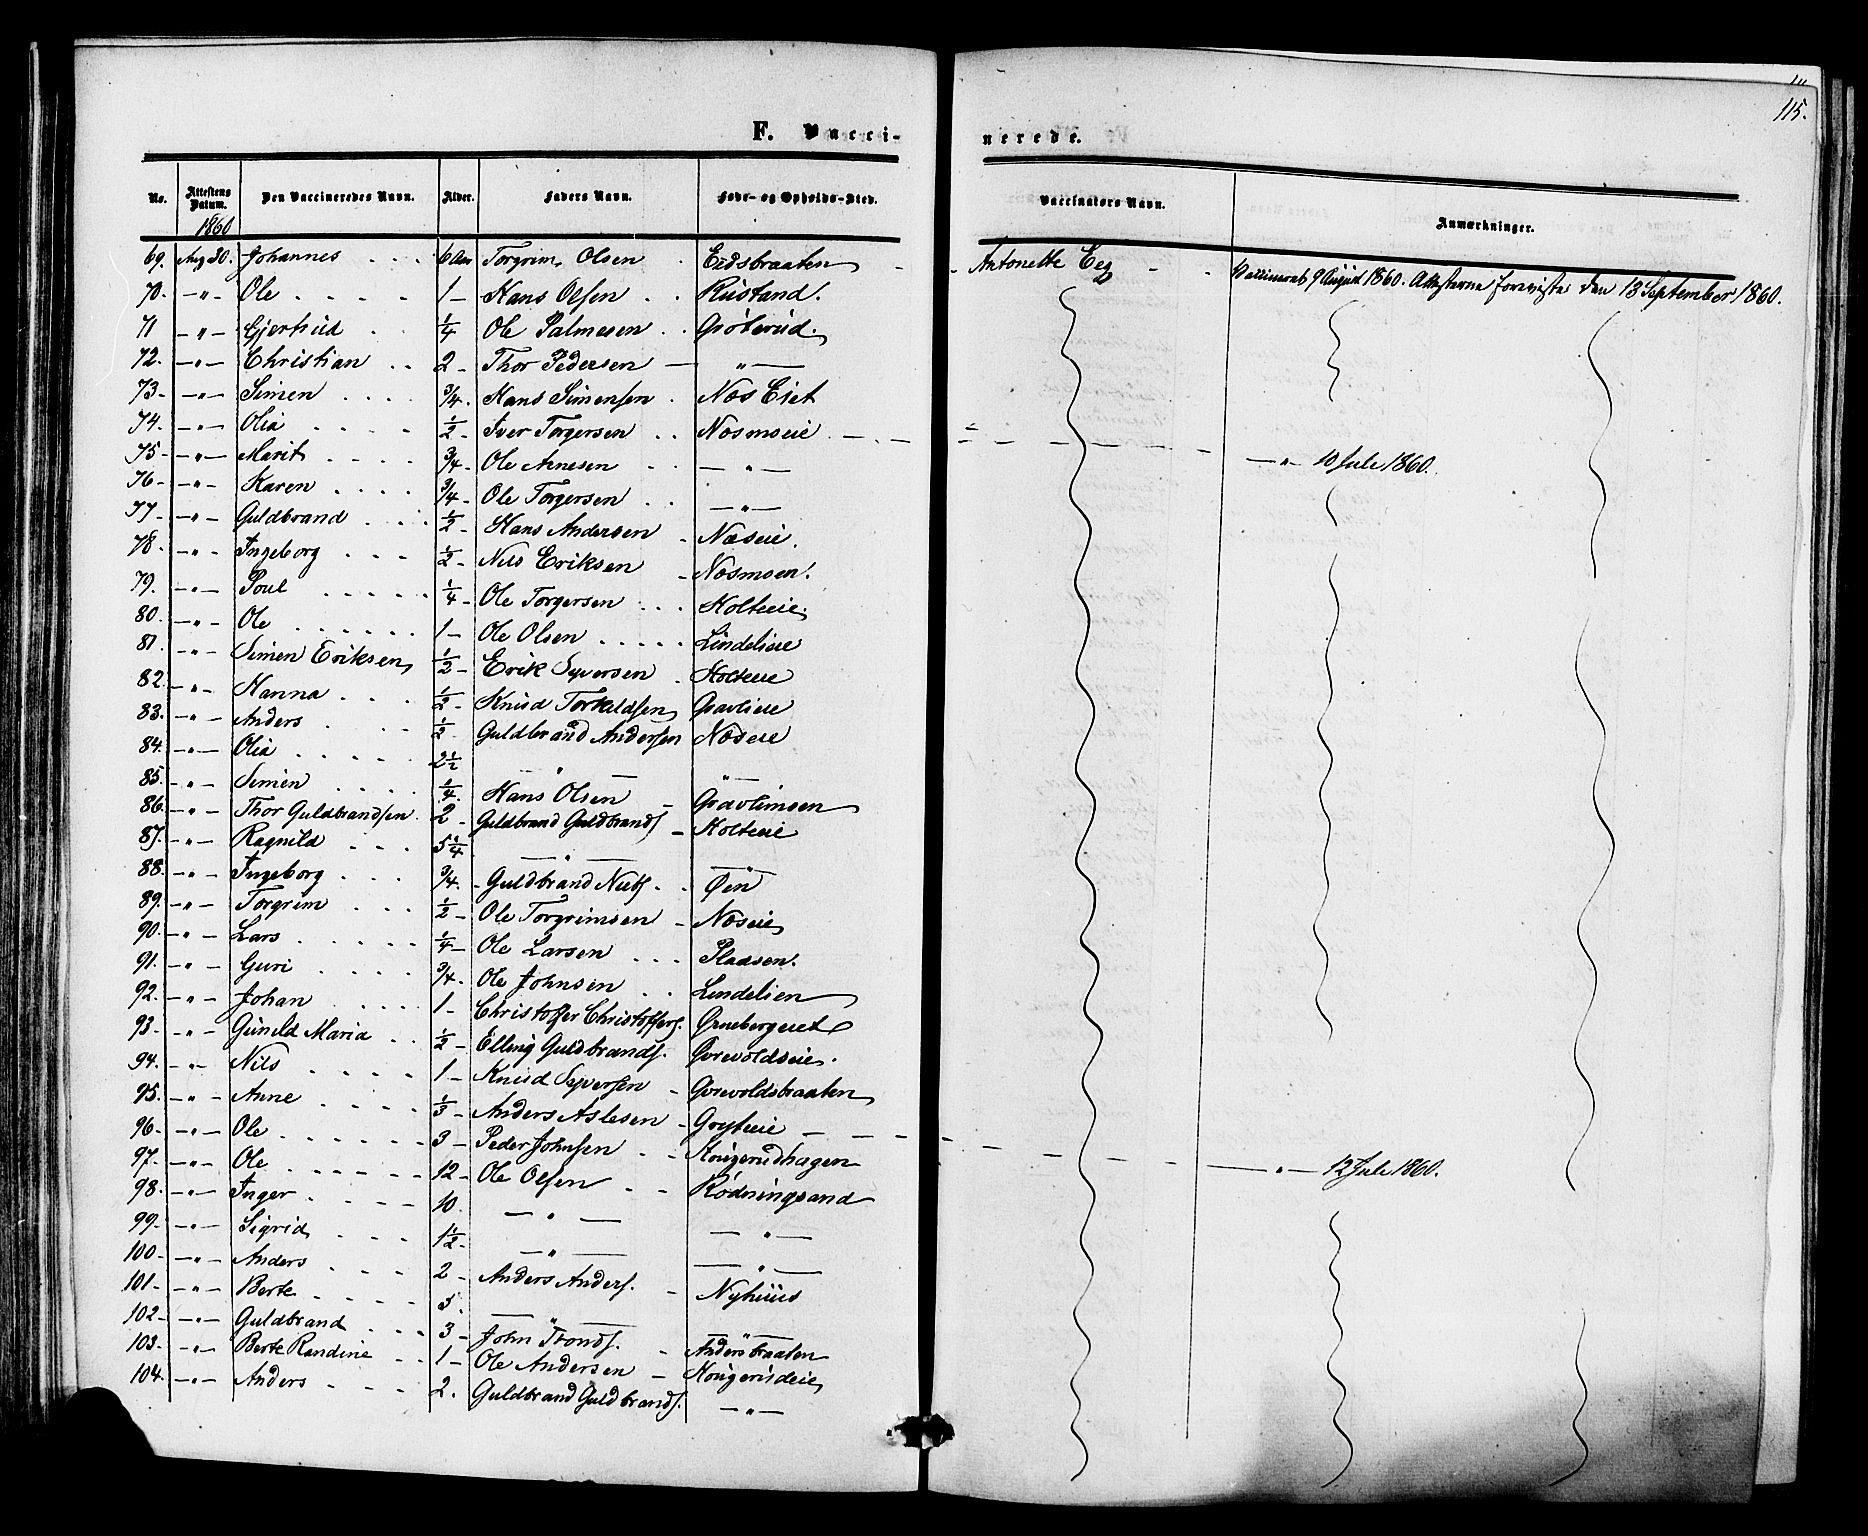 115.
F. Vaccinerede.
No. | Attestens Datum. | Den Vaccineredes Navn. | Alder. | Faders Navn. | Føde- og Opholds-Sted. | Vaccinators Navn. | Anmærkninger.
1860
69. Aug 30. Johannes 6 Aar Torgrim Olsen Eidsbraaten Antonette Eeg Vaccineret 9 August 1860. Attesterne foreviste den 13 September 1860.
70. —"— Ole 1 — Hans Olsen Rustand.
71 —"— Gjertrud 1/4 Ole Palmesen Grøterud.
72. —"— Christian 2 — Thor Pedersen — "—
73 —"— Simen 3/4. Hans Simensen Næs Eiet
74. —"— Olia 1/2 — Iver Torgersen Næsmoeie
75 —"— Marit 3/4 — Ole Arnesen —"— —"— 10 Juli 1860.
76 —"— Karen 3/4 — Ole Torgersen —"—
77 —"— Guldbrand 1/2 — Hans Andersen Næseie.
78. —"— Ingeborg 1/2 — Nils Eriksen Næsmoen.
79. —"— Poul 1/4 — Ole Torgersen Holteeie
80. —"— Ole 1 — Ole Olsen Lindelieie
81. —"— Simen Eriksen 1/2 — Erik Syversen Holteeie
82. —"— Hanna 1/2 — Knud Torkildsen Gravlieie
83. —"— Anders 1/2 Guldbrand Andersen Næseie
84. —"— Olia 2 1/2 —"— "—
85. —"— Simen 1/4. Hans Olsen Gravlimoen
86. —"— Thor Guldbrandsen 2 — Guldbrand Guldbrands. Holteeie
87. —"— Ragnild 5 1/4 —"— —"—
88. —"— Ingeborg 3/4. Guldbrand Niels. Øen
89. —"— Torgrim 1/2 — Ole Torgrimsen Næseie
90. —"— Lars 1/4 — Ole Larsen Pladsen.
91. —"— Guri 3/4. Ole Johnsen Lindelien
92. —"— Johan 1 — Christoffer Christoffers. Ørnebergeiet
93. —"— Gunild Maria 1/2 — Elling Guldbrands. Gorvoldseie.
94. —"— Nils 1 — Knud Syversen Gorvoldsbraaten
95. —"— Anne 1/3 — Anders Aslesen Gryteeie
96. —"— Ole 3 — Peder Johnsen Kougerudhagen —"— 12 Juli 1860.
97. —"— Ole 12 — Ole Olsen Rødningsand
98. —"— Inger 10. —"— —"—
99. —"— Sigrid 1 1/2. —"— —"—
100. —"— Anders 2 — Anders Anders. Nyhuus
101. —"— Berte 5. —"— —"—
102. —"— Guldbrand 3 — John Tronds. Andersbraaten
103. —"— Berte Randine 1 — Ole Andersen Kougerudeie
104. —"— Anders 2. Guldbrand Guldbrands. —"—